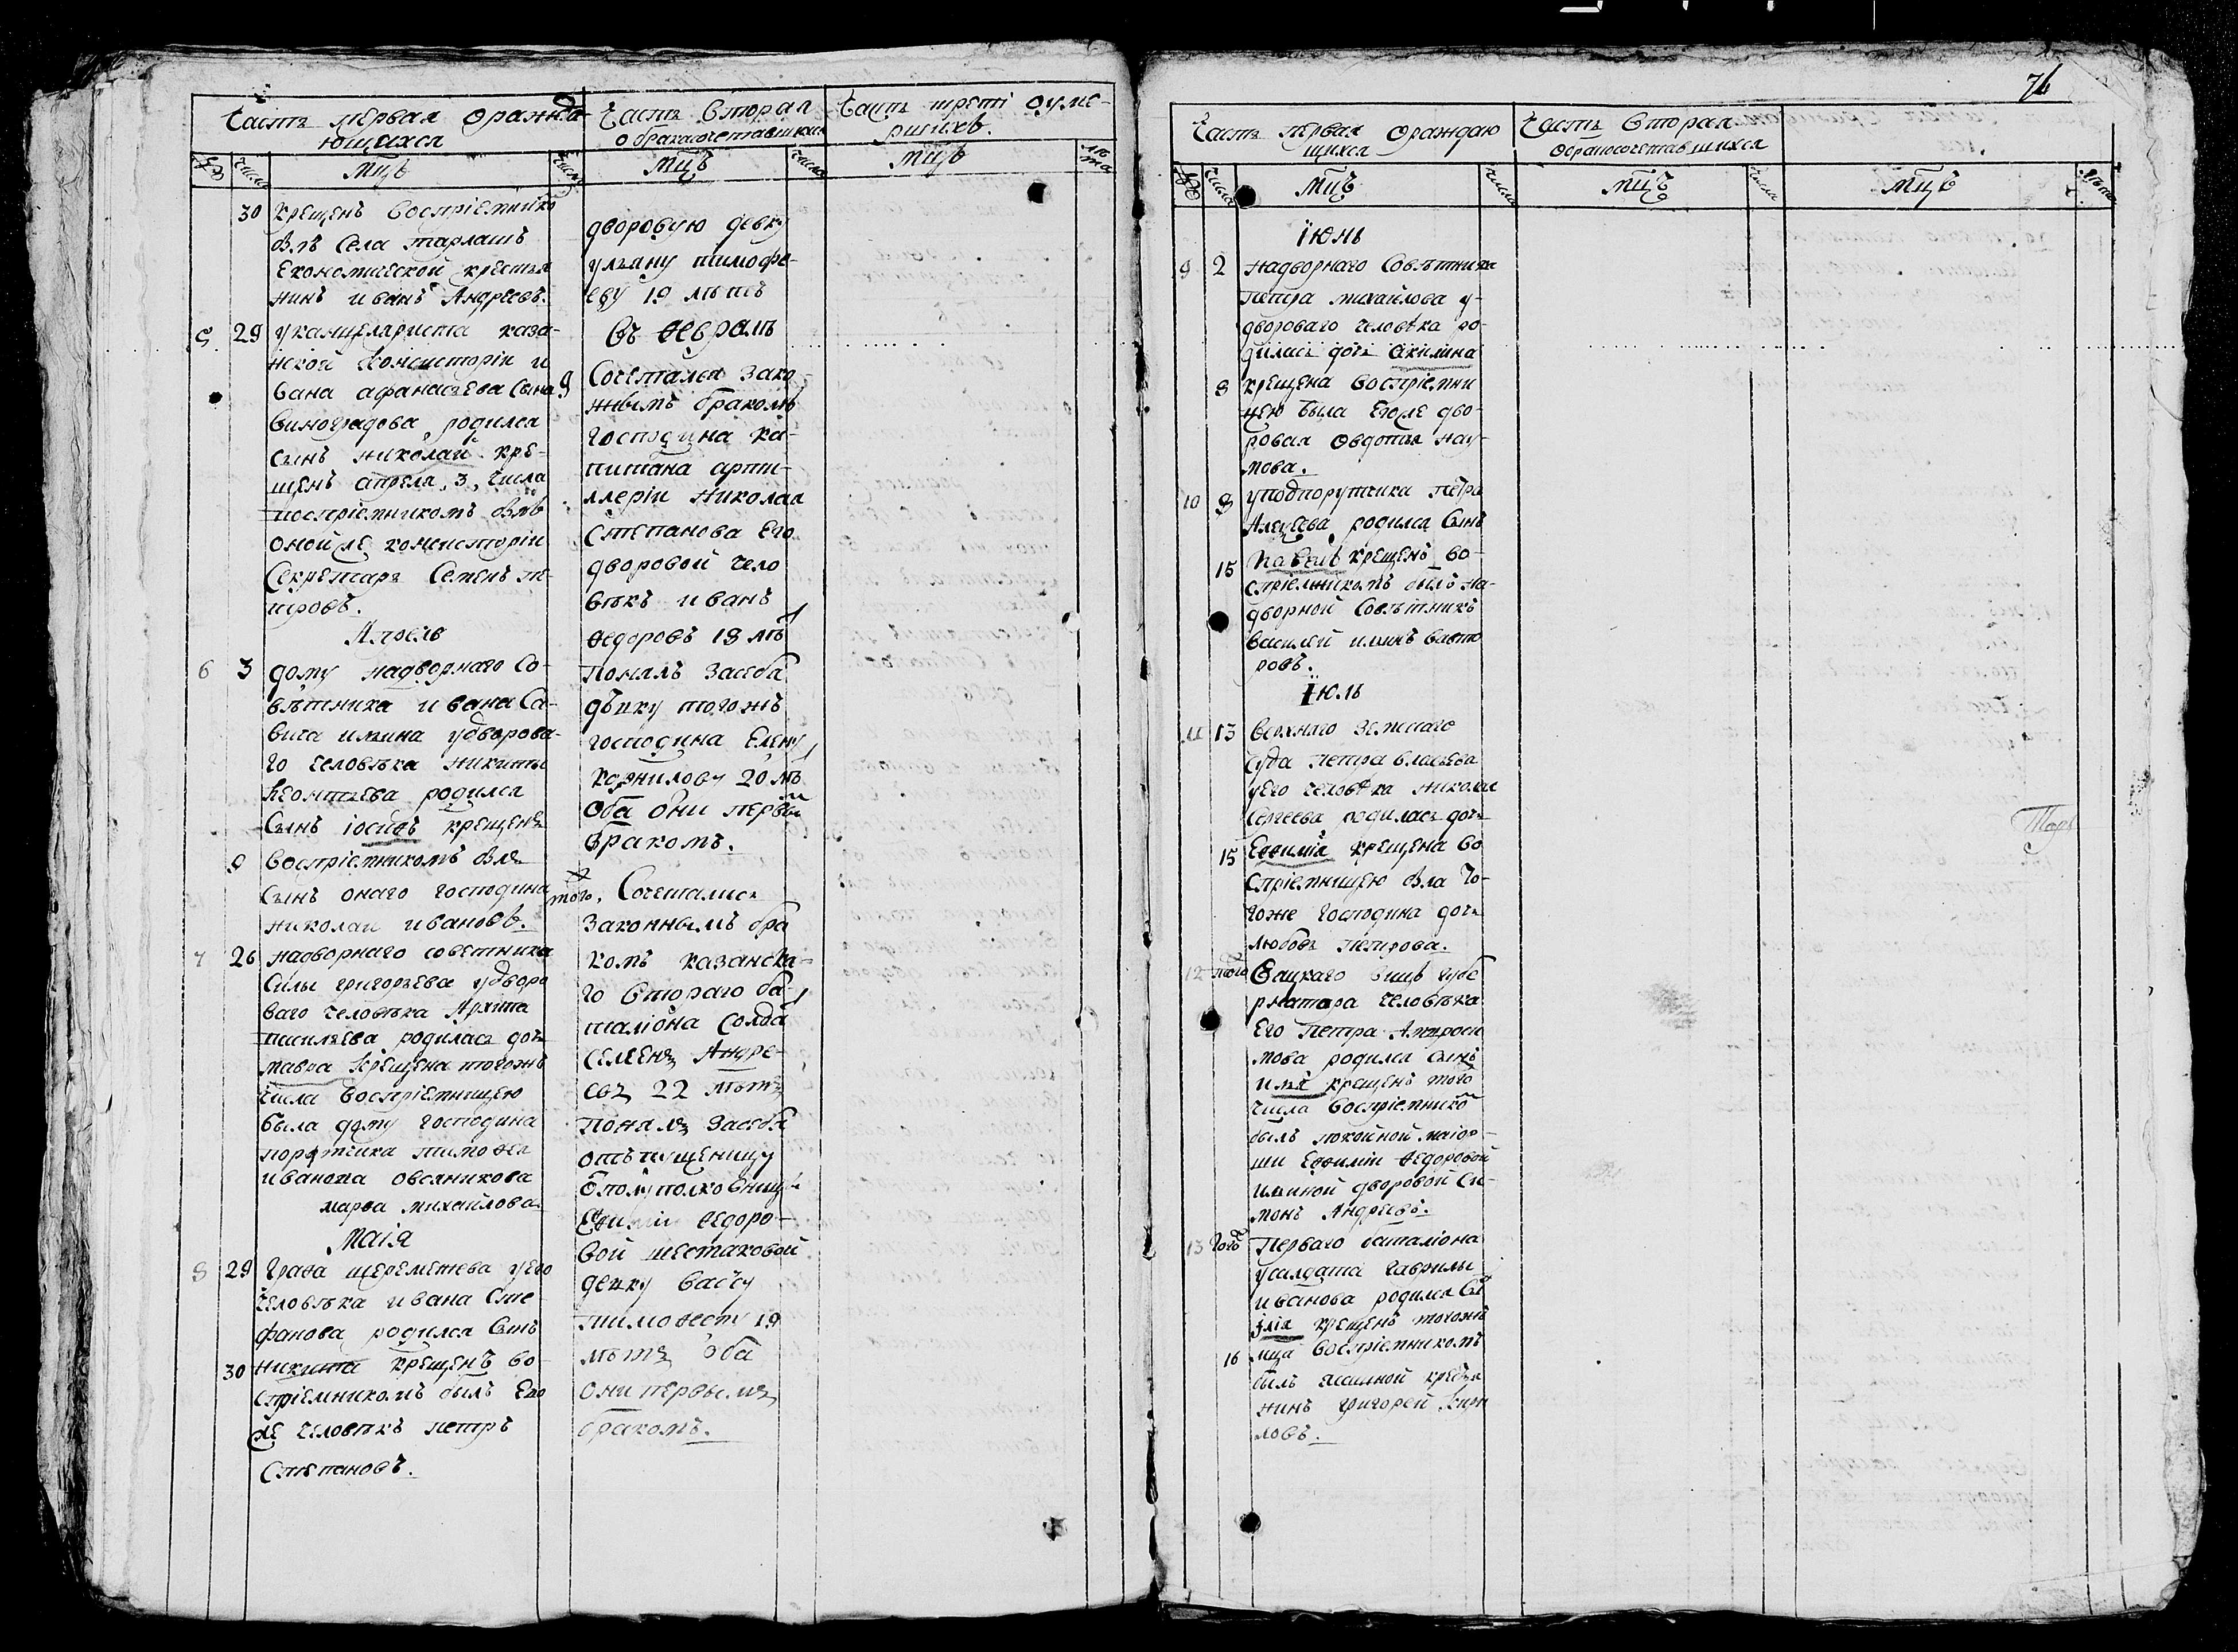 Часть первая оражда-
ющихся
№ число мцъ
30 крещенъ воспріемнико
былъ села тарлашъ
Економической крестья
нинъ иванъ Андреевъ.
5 29 уканцеляриста каза-
нской консисторіи и
вана афанасьева сына
виноградова родился
сынъ николай кре-
щенъ апреля 3 числа
воспріемникомъ былъ
оной же консисторіи
Секретарь Семенъ
Апрель
6 3 дому надворнаго Со-
вѣтника ивана Са-
вича ильина удворова-
го человѣка никиты
леонтьева родился
Сынъ іосифъ крещенъ
9 воспріемникомъ былъ
Сынъ онаго господина
николаи ивановъ.
7 26 надворнаго советника
Силы григорьева удворо
ваго человѣка Архипа
родилась дочь
мавра крещена тогожъ
числа воспріемницею
была дому господина
порутчика тимофея
иванова овсяникова
марѳа михайлова
Маія
8 29 Графа шереметева уего
человѣка ивана Сте
фанова родился Сынъ
30 никита крещенъ во-
спріемникомъ былъ Его
же человѣкъ петръ
Степановъ.
Часть вторая
обракосочетавшихся
число мцъ
дворовую девку
ульяну тимофе-
еву 19 лѣтъ
въ ѳевралѣ
9 Сочетался зако-
ннымъ бракомъ
господина ка-
питана арти-
ллеріи николая
Степанова Его
дворовой чело
вѣкъ иванъ
ѳедоровъ 18 лѣ
Понялъ засебя
дѣвку тогожъ
господина Елену
корнилову 20 лѣ
Оба они первы
бракомъ.
того. Сочетались
законнымъ бра
комъ казанска-
го втораго ба-
таліона Солда
Семенъ Андре-
евъ 22 лѣтъ
Понялъ засебя
отъпущеницу
Еѳиміи ѳедоро-
вой шестаковой
девку вассу
тимоѳееву 19
лѣтъ оба
они первымъ
бракомъ.
Часть треті оуме-
ршихъ.
число мцъ лѣта
71
Часть первая ораждаю
щихся
№ число мцъ
Іюнь
9 2 надворнаго Совѣтника
петра михайлова у-
двороваго человѣка ро-
дилась дочь Акилина
8 крещена воспріемни
цею была Егоже дво-
ровая Овдотья нау-
мова.
10 8 уподпорутчика петра
Алеѯеева родился Сынъ
15 павелъ крещенъ во-
спріемникомъ былъ на-
дворной Совѣтникъ
василей ильинъ
ровъ.
Іюль
11 13 верхняго Земскаго
суда петра власьева
уего человѣка николая
Сергеева родилась дочь
15 Еѳимія крещена во
спріемницею была то-
гоже господина дочь
любовь петрова.
12 того вице губе
рнатора человѣка
Его Петра
мова родился сынъ
илья крещенъ того
числа воспріемнико
былъ покойной маіор-
ши Еѳиміи ѳедоровой
ильиной дворовой Си-
монъ Андреевъ.
13 того Перваго баталіона
усалдата гаврилы
иванова родился Сы
ілія крещенъ тогожъ
16 мца воспріемникомъ
былъ ясашной крестья
нинъ григорей кири
ловъ.
Часть вторая
обракосочетавшихся
число мцъ
число мцъ лѣта